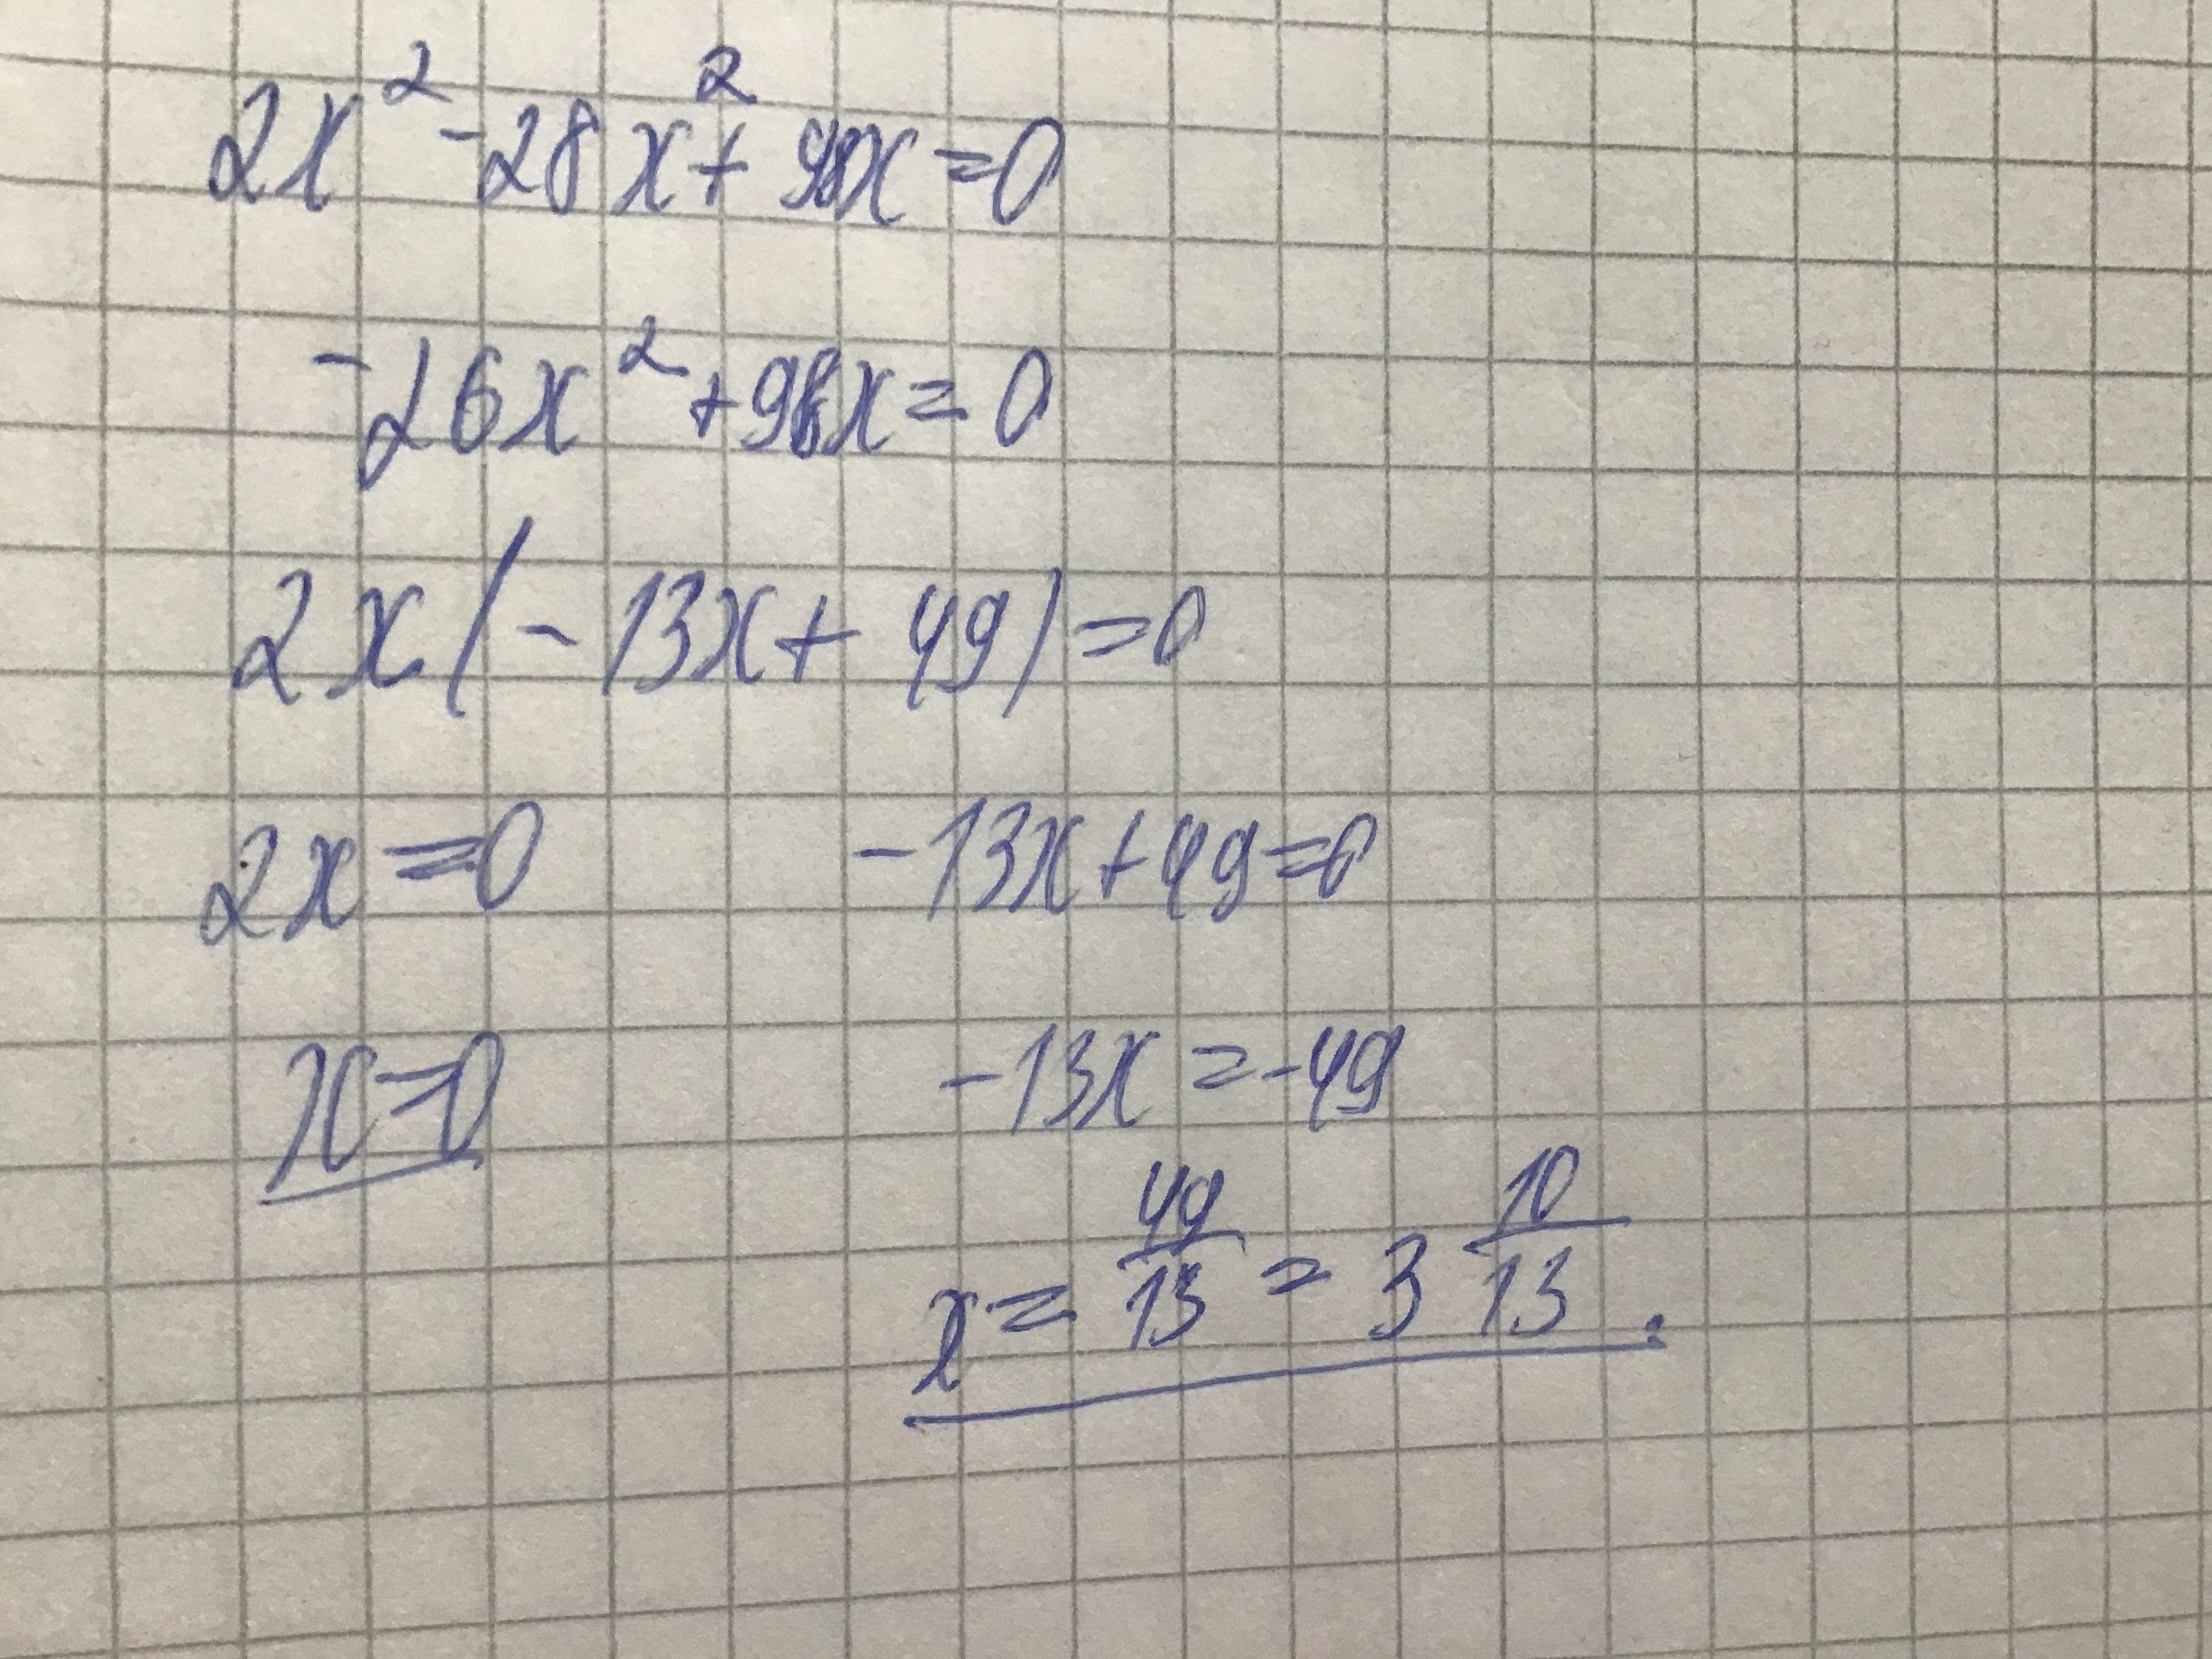 2x² - 28x² + 98x = 0
-26x² + 98x = 0
2x(-13x + 49) = 0
2x = 0 -13x + 49 = 0
x = 0 -13x = -49
x = 49/13 = 3 10/13.